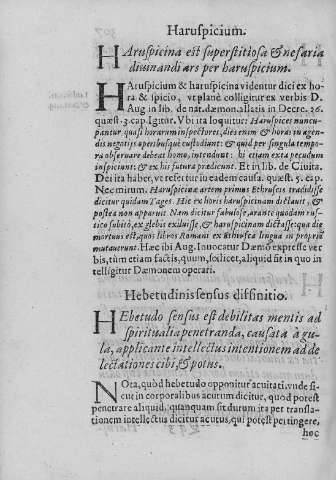 Haruspicium.
HAruspicina est superstitiosa & nefaria
diuinandi ars per haruspicium.
HAruspicium & haruspicina videntur dici ex ho
ra & spicio, vt planè colligitur ex verbis D.
Aug in lib. de nat. dæmon. allatis in Decre. 26.
quæst. 3. cap. Igitur. Vbi ita loquitur: Haruspices nuncu-
pantur quasi horarum inspectores, dies enim & horas in agen-
dis negotijs operibusque custodiunt: & quid per singula tempo-
ra obseruare debeat homo, intendunt: hi etiam exta pecudum
inspiciunt: & ex his futura prædicunt. Et in lib. de Ciuita.
Dei ita haber, vt refertur in eadem causa. quæst. 5. cap.
Nec mirum. Haruspicinæ artem primus Ethruscis tradidisse
dicitur quidam Tages. Hic ex horis haruspicinam dictauit, &
postea non apparuit. Nam dicitur fabulose, arante quodam rus-
tico subitò, ex glebis exiluisse, & haruspicinam dictasse: qua die
mortuus est, quos libros Romani ex Ethrusca lingua in propriã
mutauerunt. Hæc ibi Aug. Inuocatur Dæmõ expresse ver
bis, tùm etiam factis, quum, scilicet, aliquid sit in quo in-
telligitur Dæmonem operari.
Hebetudinis sensus diffinitio.
HEbetudo sensus est debilitas mentis ad
spiritualia penetranda, causata à gu-
la, applicante intellectus intentionem ad de
lectationes cibi, & potus.
NOta, quòd hebetudo opponitur acuitati, vnde si-
cut in corporalibus acutum dicitur, quòd potest
penetrare aliquid, quanquam sit durum ita per transla-
tionem intellectus dicitur acutus, qui potest pertingere,
hoc